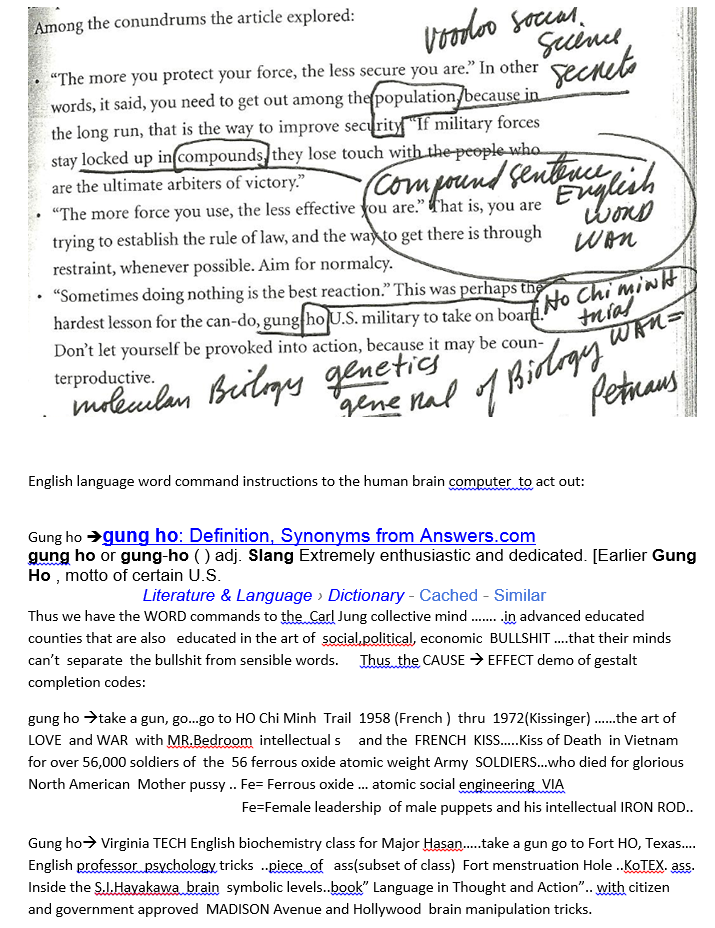 Among the conundrums the article explored:
voodoo social
Science
Secrets
• “The more you protect your force, the less secure you are.” In other
words, it said, you need to get out among the population, because in
the long run, that is the way to improve security. “If military forces
stay locked up in compounds, they lose touch with the people who
are the ultimate arbiters of victory.”
Compound sentence
English
WORD
WAR
• “The more force you use, the less effective you are.” That is, you are
trying to establish the rule of law, and the way to get there is through
restraint, whenever possible. Aim for normalcy.
• “Sometimes doing nothing is the best reaction.” This was perhaps the
hardest lesson for the can-do, gung-ho U.S. military to take on board.
Ho Chi minH
Don’t let yourself be provoked into action, because it may be coun-
terproductive.
molecular Biology genetics
general of Biology WAR=
Petraus
English language word command instructions to the human brain computer  to act out:
Gung ho ➔gung ho: Definition, Synonyms from Answers.com
gung ho or gung-ho ( ) adj. Slang Extremely enthusiastic and dedicated. [Earlier Gung
Ho , motto of certain U.S.
Literature & Language › Dictionary - Cached - Similar
Thus we have the WORD commands to the  Carl Jung collective mind ....... .in advanced educated
counties that are also  educated in the art of  social,political, economic  BULLSHIT ....that their minds
can’t  separate  the bullshit from sensible words.    Thus  the CAUSE ➔ EFFECT demo of gestalt
completion codes:
gung ho ➔take a gun, go...go to HO Chi Minh  Trail  1958 (French )  thru  1972(Kissinger) ......the art of
LOVE  and WAR  with MR.Bedroom  intellectual s    and the  FRENCH  KISS.....Kiss of Death  in Vietnam
for over 56,000 soldiers of  the  56 ferrous oxide atomic weight Army  SOLDIERS...who died for glorious
North American  Mother pussy .. Fe= Ferrous oxide ... atomic social engineering  VIA
Fe=Female leadership  of male puppets and his intellectual IRON ROD..
Gung ho➔ Virginia TECH English biochemistry class for Major  Hasan.....take a gun go to Fort HO, Texas....
English professor  psychology tricks  ..piece  of   ass(subset of class)  Fort menstruation Hole ..KoTEX. ass.
Inside the S.I.Hayakawa  brain  symbolic levels..book” Language in Thought and Action”.. with citizen
and government approved  MADISON Avenue and Hollywood  brain manipulation tricks.